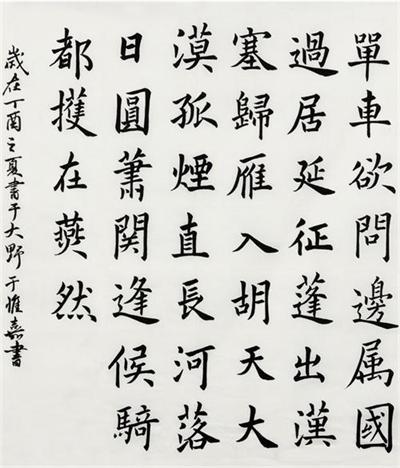 單車欲問邊属國
過居延征蓬出漢
塞歸雁入胡天大
漠孤煙直長河落
日圓蕭関逢候騎
都擭在燕然
歲在丁酉之夏書于大野于惟書